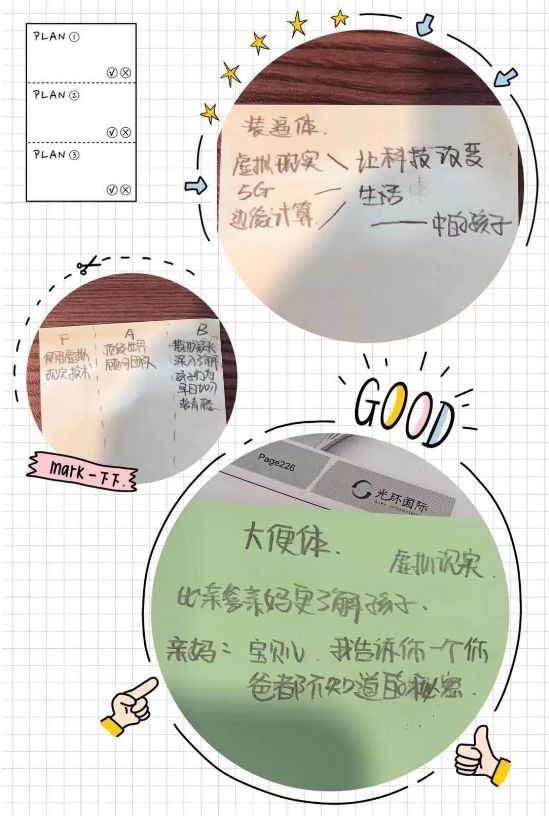 PLAN ①
PLAN ②
PLAN ③
装逼体.
虚拟现实
5G
边缘计算
让科技改变
生活中
——中的孩子
F
使用虚拟
现实技术
A
顶级世界
顾问团队
B
帮助家长
深入了解
孩子行为
早日加入
常青藤
mark一下下.
GOOD
Page226
光环国际
大便体.
虚拟现实.
比亲爹亲妈更了解孩子.
亲妈：宝贝儿 我告诉你一个你
爸都不知道的秘密.